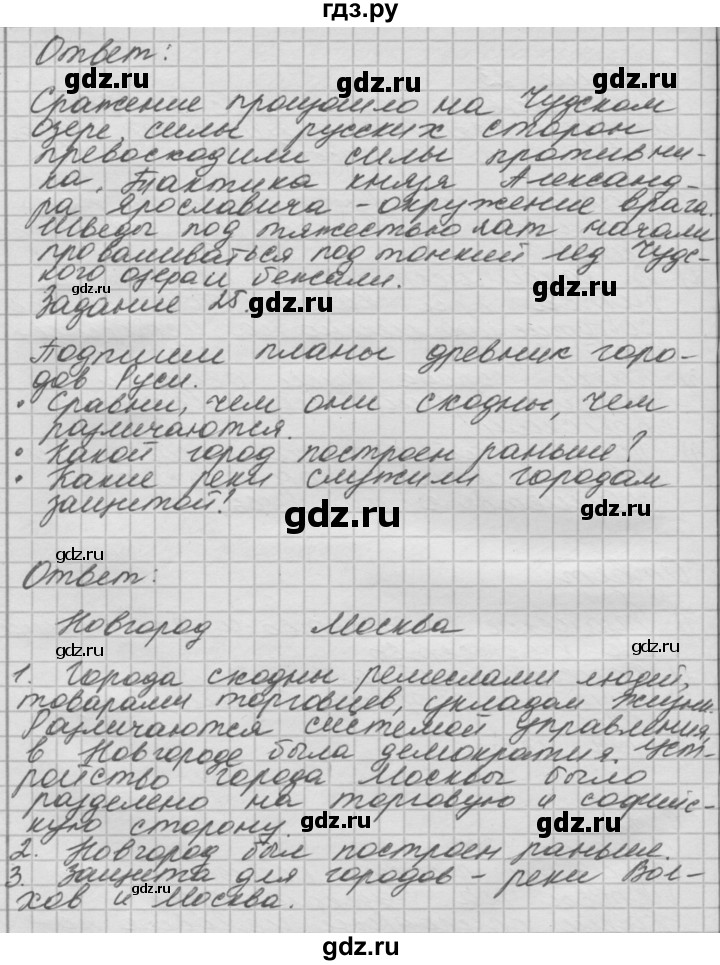 гдз.ру
Ответ:
gdz.ru gdz.ru gdz.ru
Сражение произошло на Чудском
озере, силы русских сторон
превосходили силы противни-
ка. Тактика князя Александ-
gdz.ru gdz.ru
ра Ярославича - окружение врага.
Шведы под тяжестью лат начали
проваливаться под тонкий лед Чудс-
кого озера и бежали.
gdz.ru gdz.ru
Задание 25.
Подпиши планы древник горо-
дов Руси.
• Сравни, чем они скодны, чем
различаются.
• Какой город построен раньше?
• Какие реки служили городам
защитой?
gdz.ru gdz.ru
gdz.ru
Ответ:
Новгород Москва
gdz.ru
gdz.ru
1. Города скодны ремеслами людей,
товарами торговцев, укладом жизни.
Различаются системой управления,
в Новгороде была демократия. Уст-
ройство города Москвы было
разделено на торговую и софийс-
кую сторону.
gdz.ru gdz.ru
2. Новгород был построен раньше.
3. Защита для городов - реки Вол-
хов и Москва.
gdz.ru
gdz.ru